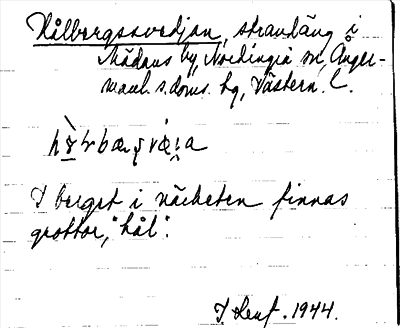 Hålbergssvedjan, strandäng i
Mädans by, Nordingrå sn, Ånger-
manl. s. doms. hg, Västern. l.
I berget i närheten finnas
grottor, "hål".
1944.